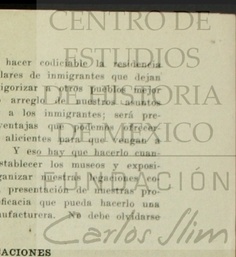 CENTRO DE
ESTUDIOS
DE HISTORIA
DE MÉXICO
FUNDACIÓN
Carlos Slim
hacer codiciable la residencia
lares de inmigrantes que dejan
igorizar a otros pueblos mejor
arreglo de nuestros asuntos
a los inmigrantes; será pre-
ventajas que podemos ofrecer
alicientes para que vengan a
Y eso hay que hacerlo cuan-
stablecer los museos y exposi-
ganizar nuestras legaciones co-
presentación de nuestras pro-
eficacia que pueda hacerlo una
nufacturera. No debe olvidarse
ACIONES